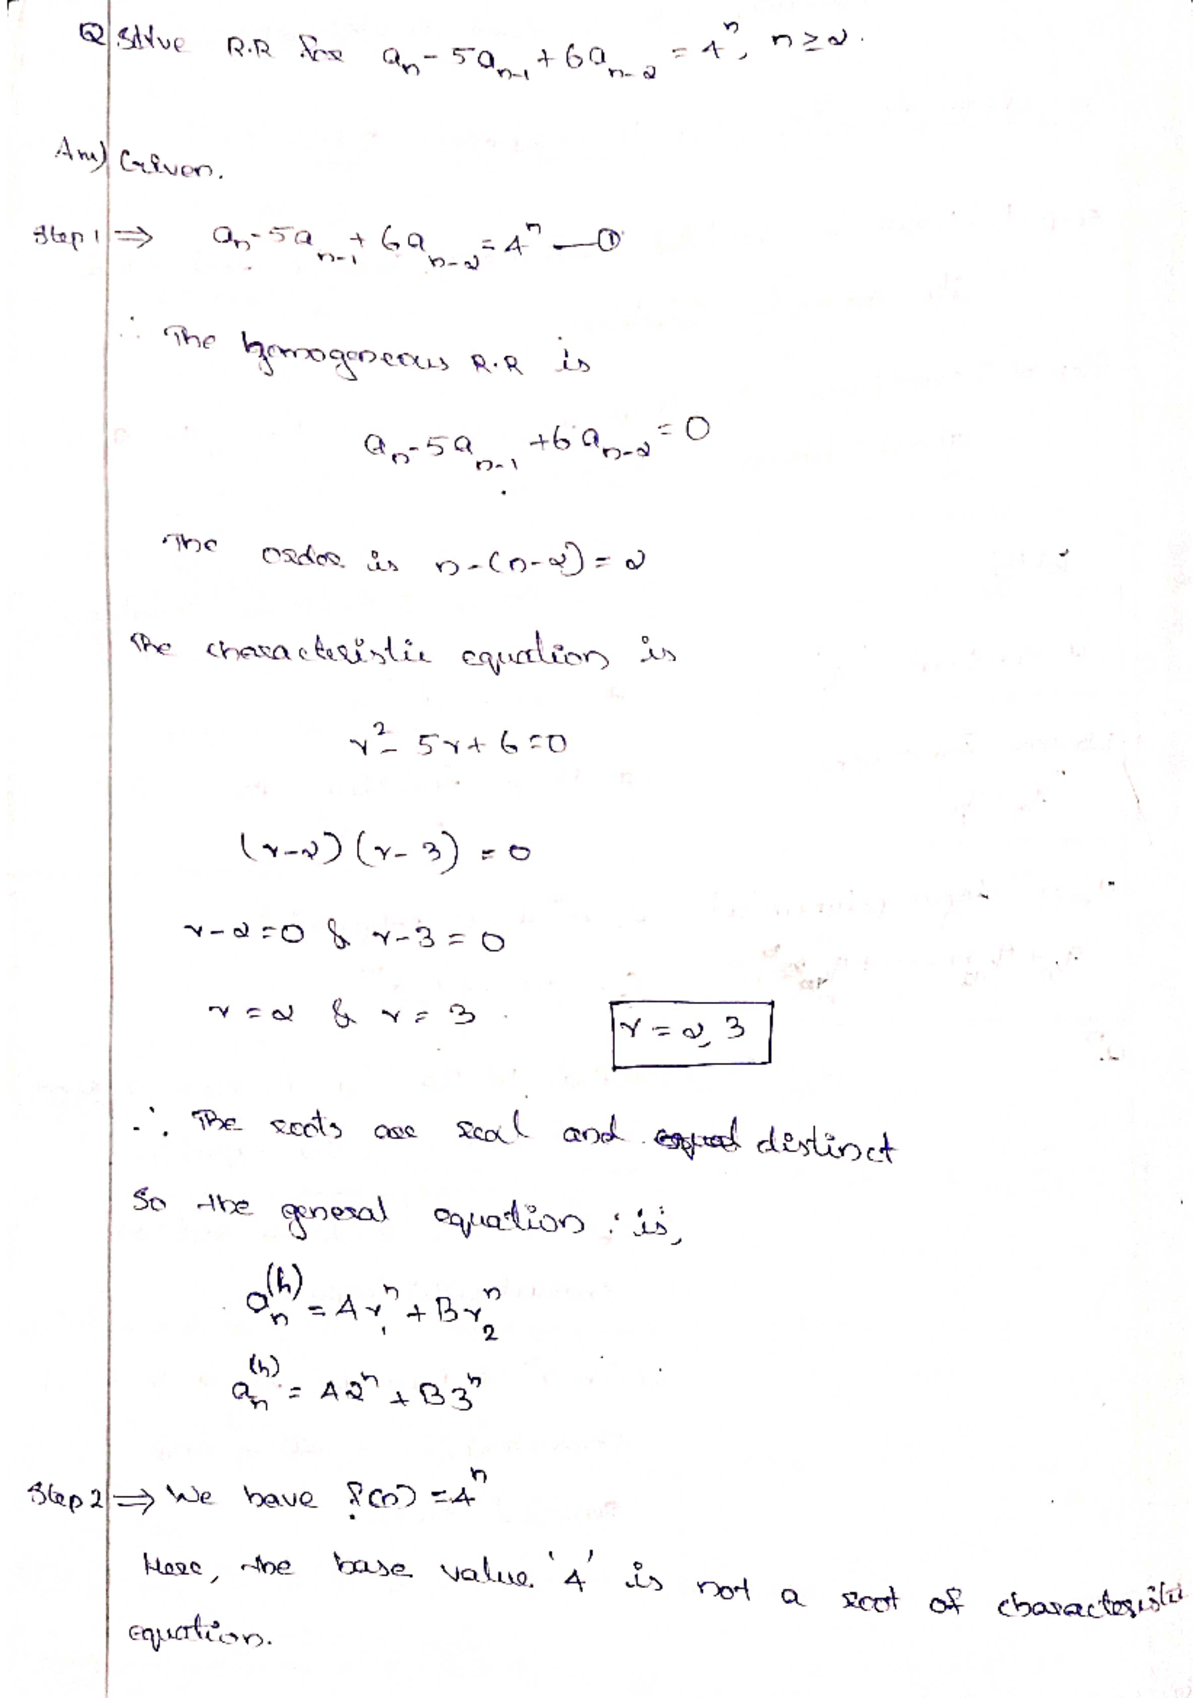 Q Solve R.R for aₙ - 5aₙ₋₁ + 6aₙ₋₂ = 4ⁿ, n ≥ 2.
Ans) Given.
Step 1 ⇒ aₙ - 5aₙ₋₁ + 6aₙ₋₂ = 4ⁿ —①
∴ The homogeneous R.R is
aₙ - 5aₙ₋₁ + 6aₙ₋₂ = 0
The order is n-(n-2) = 2
The characteristic equation is
r² - 5r + 6 = 0
(r-2) (r-3) = 0
r-2=0 & r-3=0
r=2 & r=3 r=2, 3
∴ The roots are real and distinct
So the general equation is,
aₙ⁽ʰ⁾ = Ar₁ⁿ + Br₂ⁿ
aₙ⁽ʰ⁾ = A2ⁿ + B3ⁿ
Step 2 ⇒ We have f(n) = 4ⁿ
Here, the base value '4' is not a root of characteristic
equation.